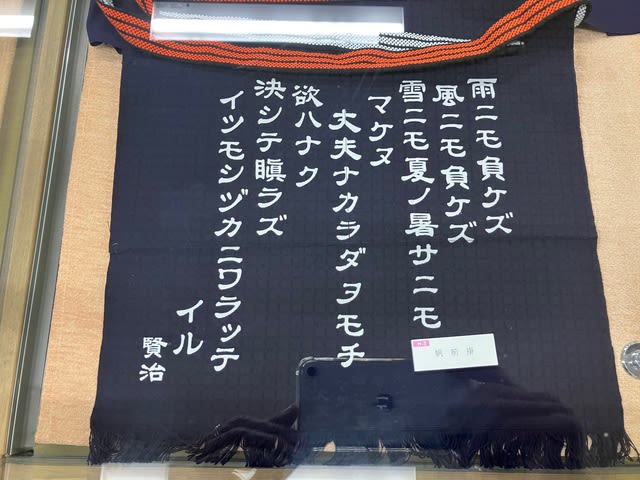 雨ニモ負ケズ
風ニモ負ケズ
雪ニモ夏ノ暑サニモ
マケヌ
丈夫ナカラダヲモチ
欲ハナク
決シテ瞋ラズ
イツモシヅカニワラッテ
イル
賢治
帆前掛